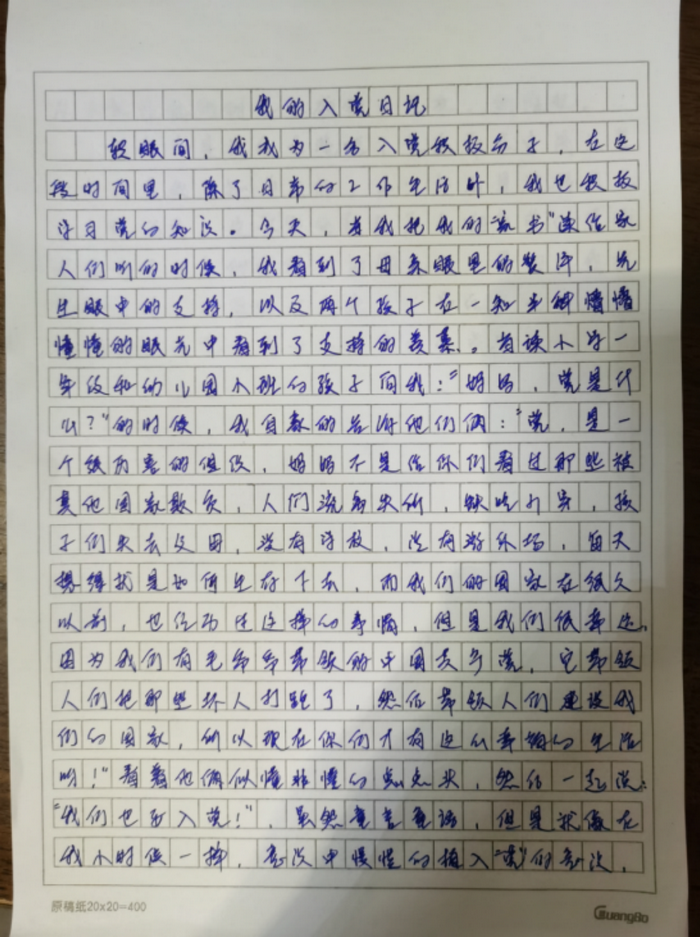 我的入党日记
转眼间，我成为一名入党积极分子，在这
段时间里，除了日常的工作生活外，我也积极
学习党的知识。今天，当我把我的“家书”读给家
人们听的时候，我看到了母亲眼里的赞许，先
生眼中的支持，以及两个孩子在一知半解懵懵
懂懂的眼光中看到了支持的羡慕。当读小学一
年级和幼儿园小班的孩子问我：“妈妈，党是什
么？”的时候，我自豪的告诉他们俩：“党，是一
个很厉害的组织，妈妈不是给你们看过那些被
其他国家欺负，人们流离失所，缺吃少穿，孩
子们失去父母，没有学校，没有游乐场，每天
想得就是如何生存下去，而我们的国家在很久
以前，也经历过这样的事情，但是我们很幸运，
因为我们有毛爷爷带领的中国共产党，它带领
人们把那些坏人打跑了，然后带领人们建设我
们的国家，所以现在你们才有这么幸福的生活
哟！”看着他俩似懂非懂的点点头，然后一起说：
“我们也要入党！”，虽然童言童语，但是就像在
我小时候一样，意识中慢慢的植入“党”的意识，
原稿纸20x20=400
GuangBo